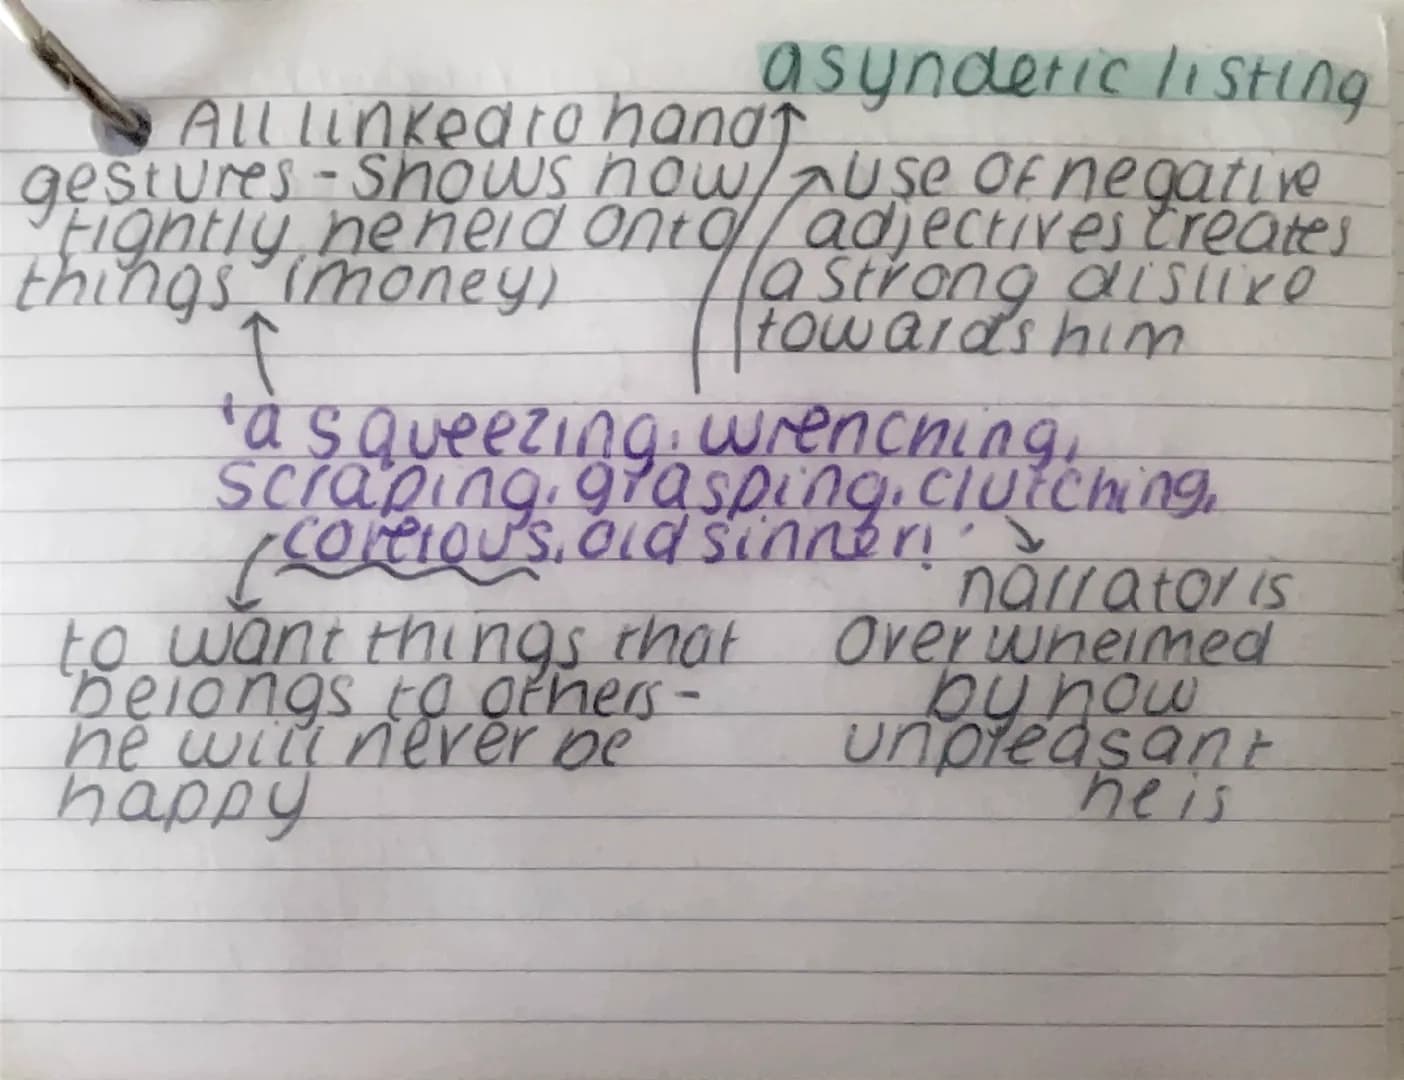 asyndetic listing
All linked to hand
gestures - shows how
tightly he held onto
things (money)
use of negative
adjectives creates
a strong dislike
towards him
'a squeezing, wrenching,
scraping, grasping, clutching,
covetous, old sinner!'
to want things that
belongs to others -
he will never be
happy
narrator is
overwhelmed
by how
unpleasant
he is